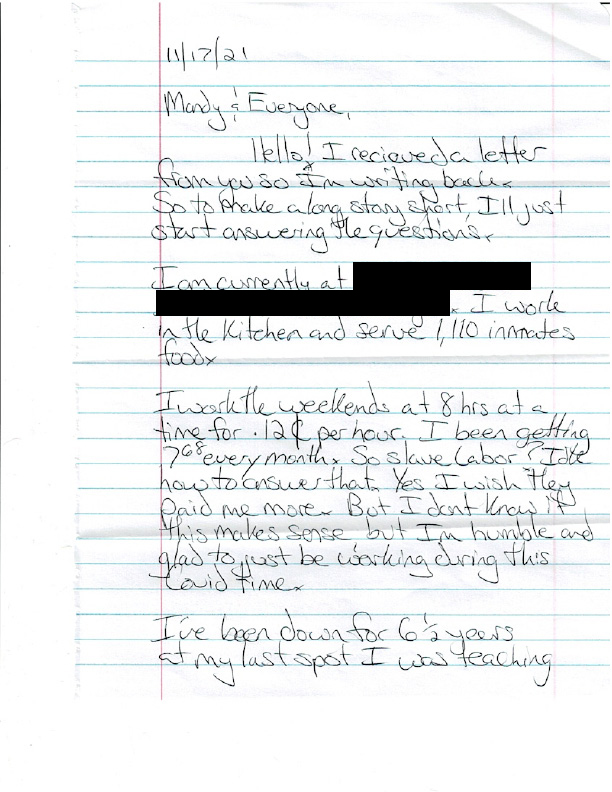 11/17/21
Mandy & Everyone,
Hello! I recieved a letter
from you so I'm writing back.
So to make a long story short, I'll just
start answering the questions.
I am currently at
. I work
in the Kitchen and serve 1,110 inmates
food.
I work the weekends at 8 hrs at a
time for .12¢ per hour. I been getting
7⁶⁸ every month. So slave Labor? Idk
how to answer that. Yes I wish they
paid me more. But I dont know if
this makes sense but I'm humble and
glad to just be working during this
Covid time.
I've been down for 6 ½ years
at my last spot I was teaching